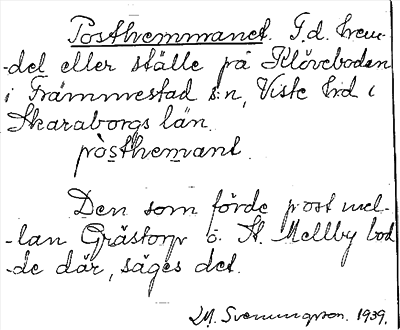 Posthemmanet. F.d. hem-
-del eller ställe på Klöveboden
i Främmestad s:n, Viste hrd i
Skaraborgs län.
pòsthemant.
Den som förde post mel-
-lan Grästorp o. St. Mellby bod-
-de där, säges det.
M. Svenungson. 1939.